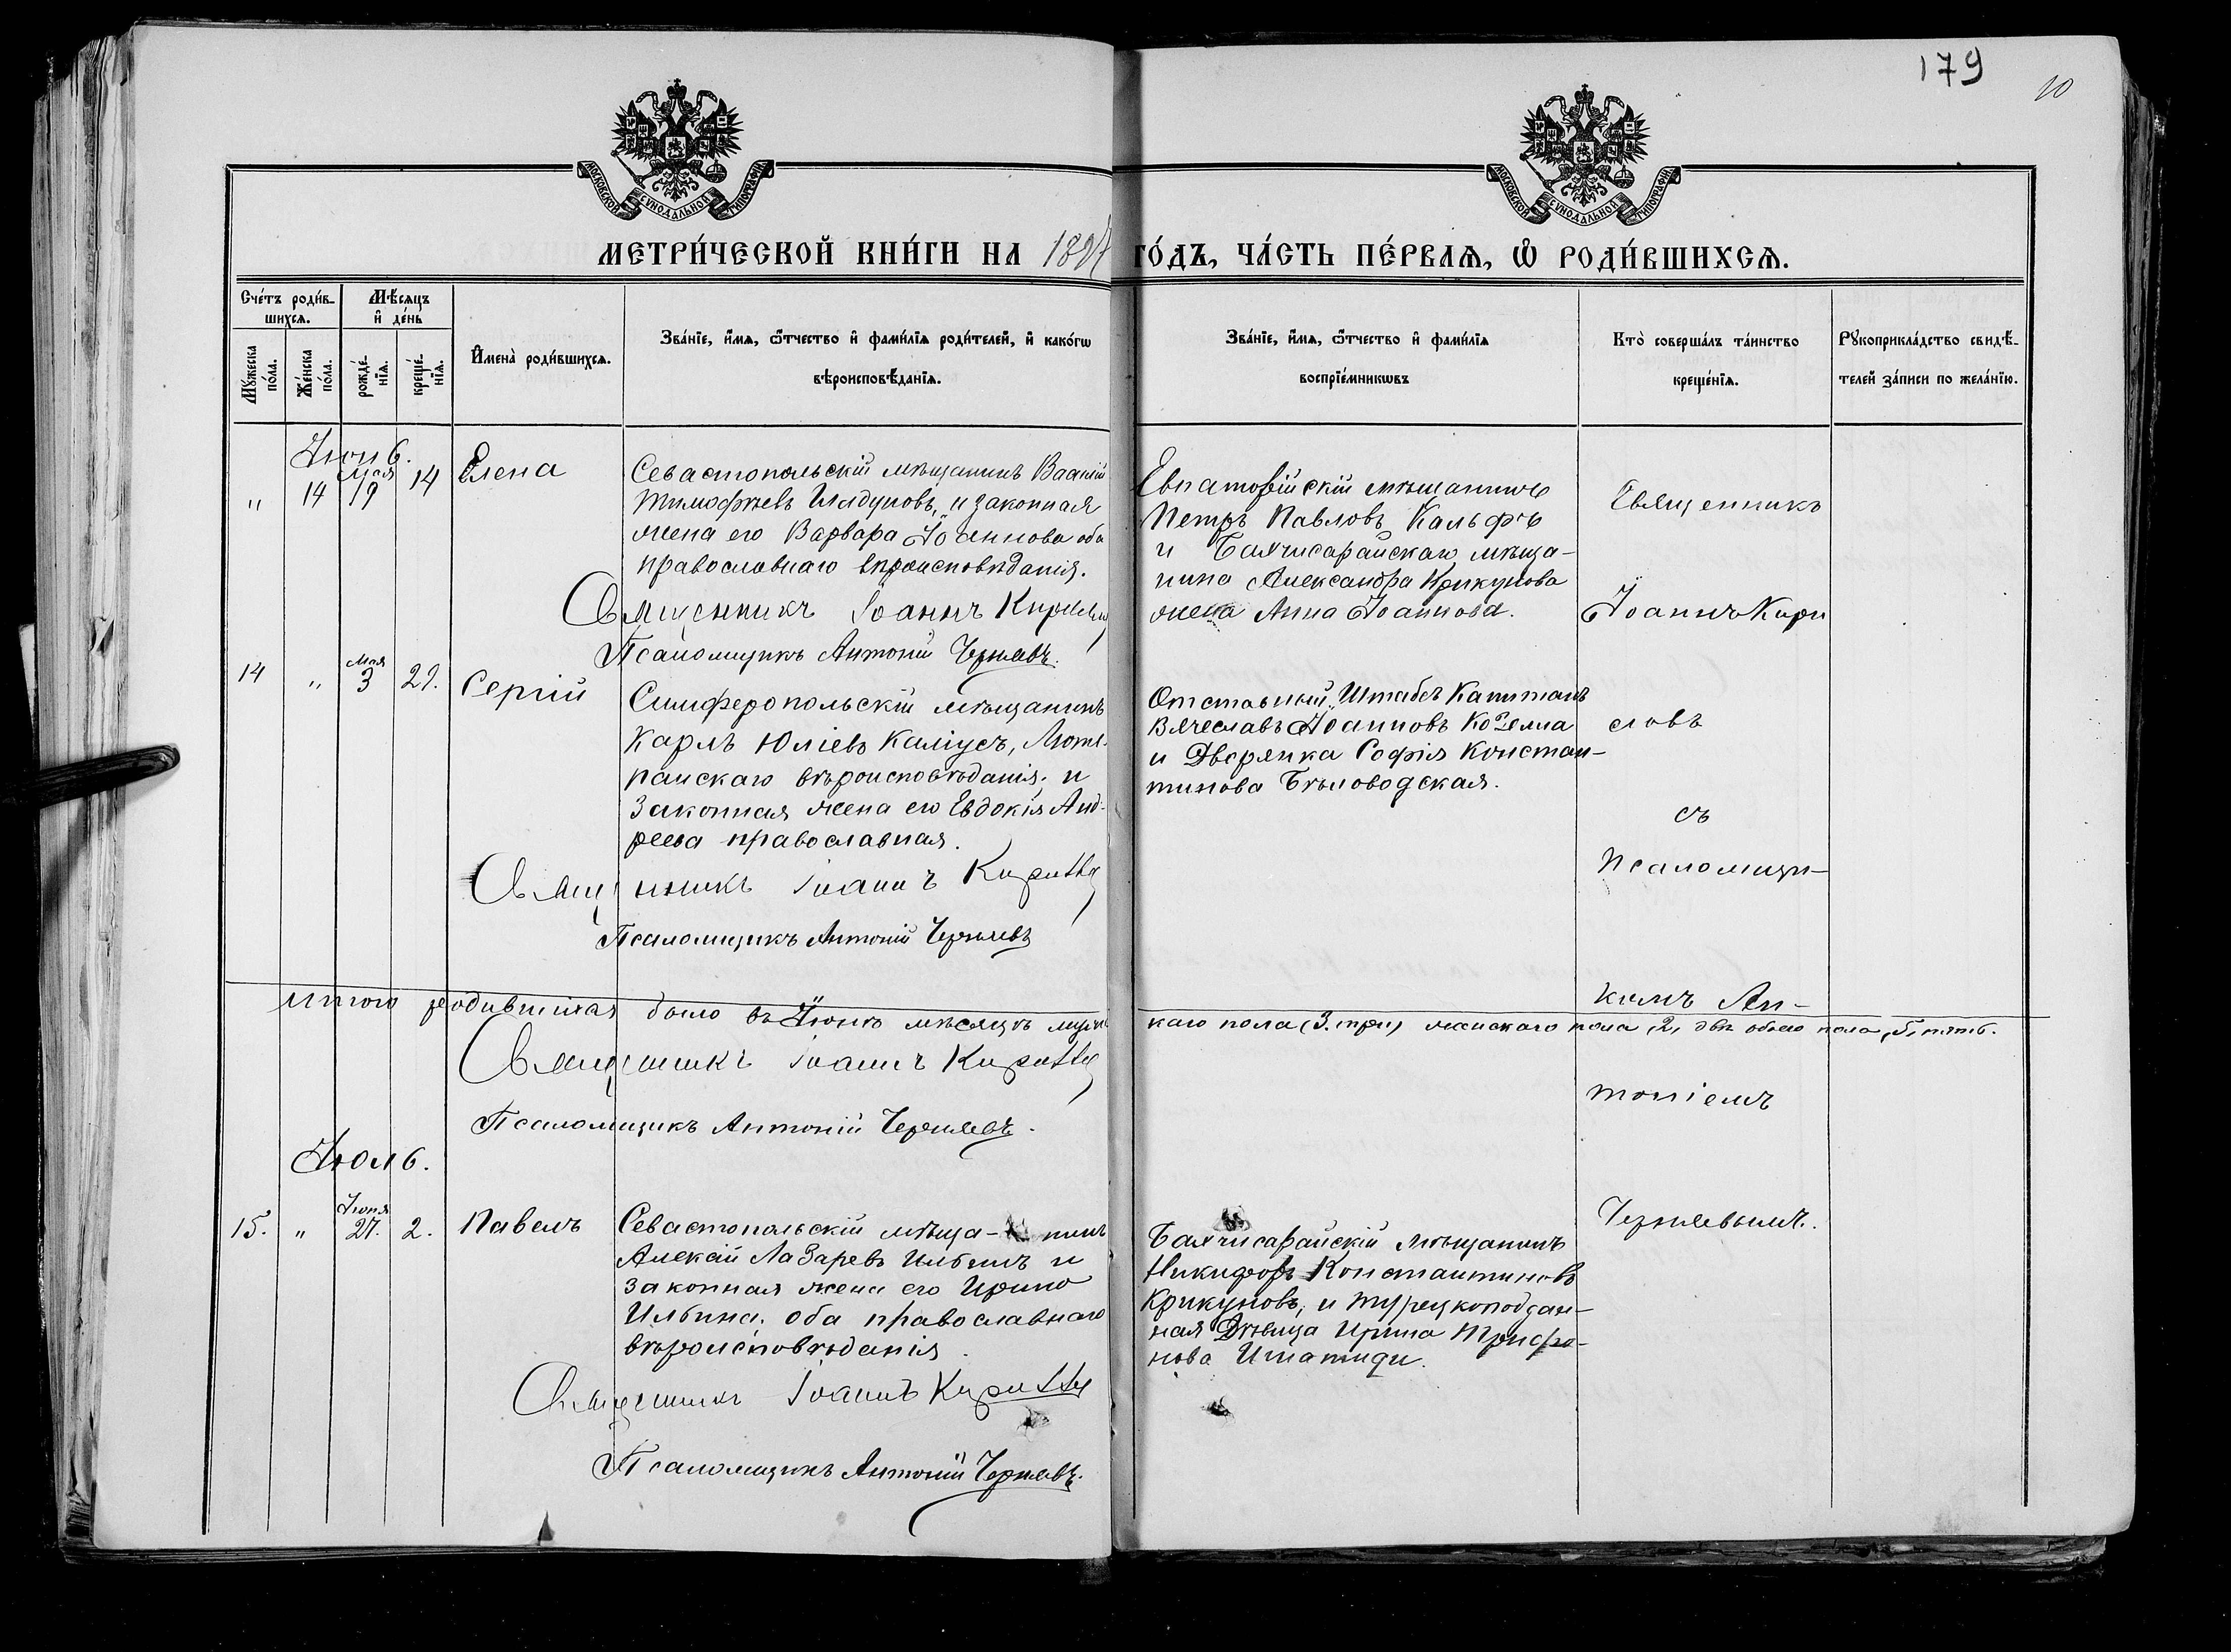 179
10
МОСКОВСКОЙ СѴНОДАЛЬНОЙ ТИПОГРАФІИ
МОСКОВСКОЙ СѴНОДАЛЬНОЙ ТИПОГРАФІИ
МЕТРИ́ЧЕСКОЙ КНИ́ГИ НА 1897 ГО́ДЪ, ЧА́СТЬ ПЕ́РВАѦ, Ѡ РОДИ́ВШИХСѦ.
Сче́тъ роди́в-
шихсѧ.
Мѣ́сѧцъ
и҆ де́нь
Мꙋ́жеска
по́ла.
Же́нска
по́ла.
рожде́-
нїѧ.
креще́-
нїѧ.
И҆мена̀ роди́вшихсѧ.
Зва́нїе, и҆́мѧ, ѻ҆́тчество и҆ фами́лїѧ роди́телей, и҆ како́гѡ
вѣроисповѣ́данїѧ.
Зва́нїе, и҆́мѧ, ѻ҆́тчество и҆ фами́лїѧ
воспрїе́мникѡвъ
Кто̀ соверша́лъ та́инство
креще́нїѧ.
Рꙋкоприкла́дство свидѣ́-
телей за́писи по жела́нїю.
Іюнь.
" 14 Мая 19 14 Елена
Севастопольскій мѣщанинъ Василій
Тимофѣевъ и законная
жена его Варвара Іоаннова оба
православнаго вѣроисповѣданія.
Священникъ Іоаннъ Кириловъ
Псаломщикъ Антоній Черняевъ.
Евпаторійскій мѣщанинъ
Петръ Павловъ Кальфъ
и Бахчисарайскаго мѣща-
нина Александра Крикунова
жена Анна Іоаннова.
Священникъ
Іоаннъ Кири
14 " Мая 3 29. Сергій
Симферопольскій мѣщанинъ
Карлъ Юліевъ Каліусъ, Люте-
ранскаго вѣроисповѣданія, и
законная жена его Евдокія Анд-
реева православная.
Священникъ Іоаннъ
Псаломщикъ Антоній Черняевъ
Отставный Штабсъ Капитанъ
Вячеславъ Іоанновъ
и Дворянка Софія Констан-
тинова Бѣловодская.
ловъ
съ
Псаломщи-
комъ Ан-
Итого родившихся было въ Іюнѣ мѣсяцѣ мужс
каго пола (3. три) женскаго пола, 2, двѣ обоего пола, 5, пять.
Священникъ Іоаннъ
Псаломщикъ Антоній Черняевъ.
тоніемъ
Іюль.
15. " Іюня 27. 2. Павелъ
Севастопольскій мѣща- нинъ
Алексій Лазаревъ Ильинъ и
законная жена его Ирина
Ильина. оба православнаго
вѣроисповѣданія.
Священникъ Іоаннъ
Псаломщикъ Антоній Черняевъ.
Бахчисарайскій мѣщанинъ
Никифоръ Константиновъ
Крикуновъ, и турецкоподдан-
ная Дѣвица Ирина Трифо-
нова
Черняевымъ.